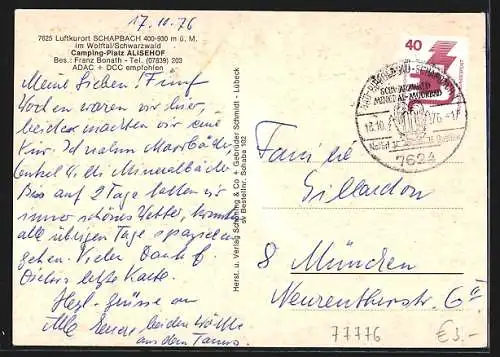 17.10.76
7625 Luftkurort SCHAPBACH 400-930 m ü. M.
im Wolftal/Schwarzwald
Camping-Platz ALISEHOF
Bes.: Franz Bonath - Tel. (07839) 203
ADAC + DCC empfohlen
Meine Lieben! Fünf
Wochen waren wir hier,
beide machten wir eine
Kur. Ich nahm Moorbäder,
4 die Mineralbäder
Bis auf 2 Tage hatten wir
immer schönes Wetter, konnten
alle übrigen Tage spazieren
gehen. Vielen Dank f.
letzte Karte.
Herzl. Grüsse an
Alle Eure beiden
aus dem Taunus.
Herst. u. Verlag Schöning & Co + Gebrüder Schmidt - Lübeck
Bestellnr. Schaba 162
40
7624
Familie
8 München
Neureutherstr. 6
77776
€3.-